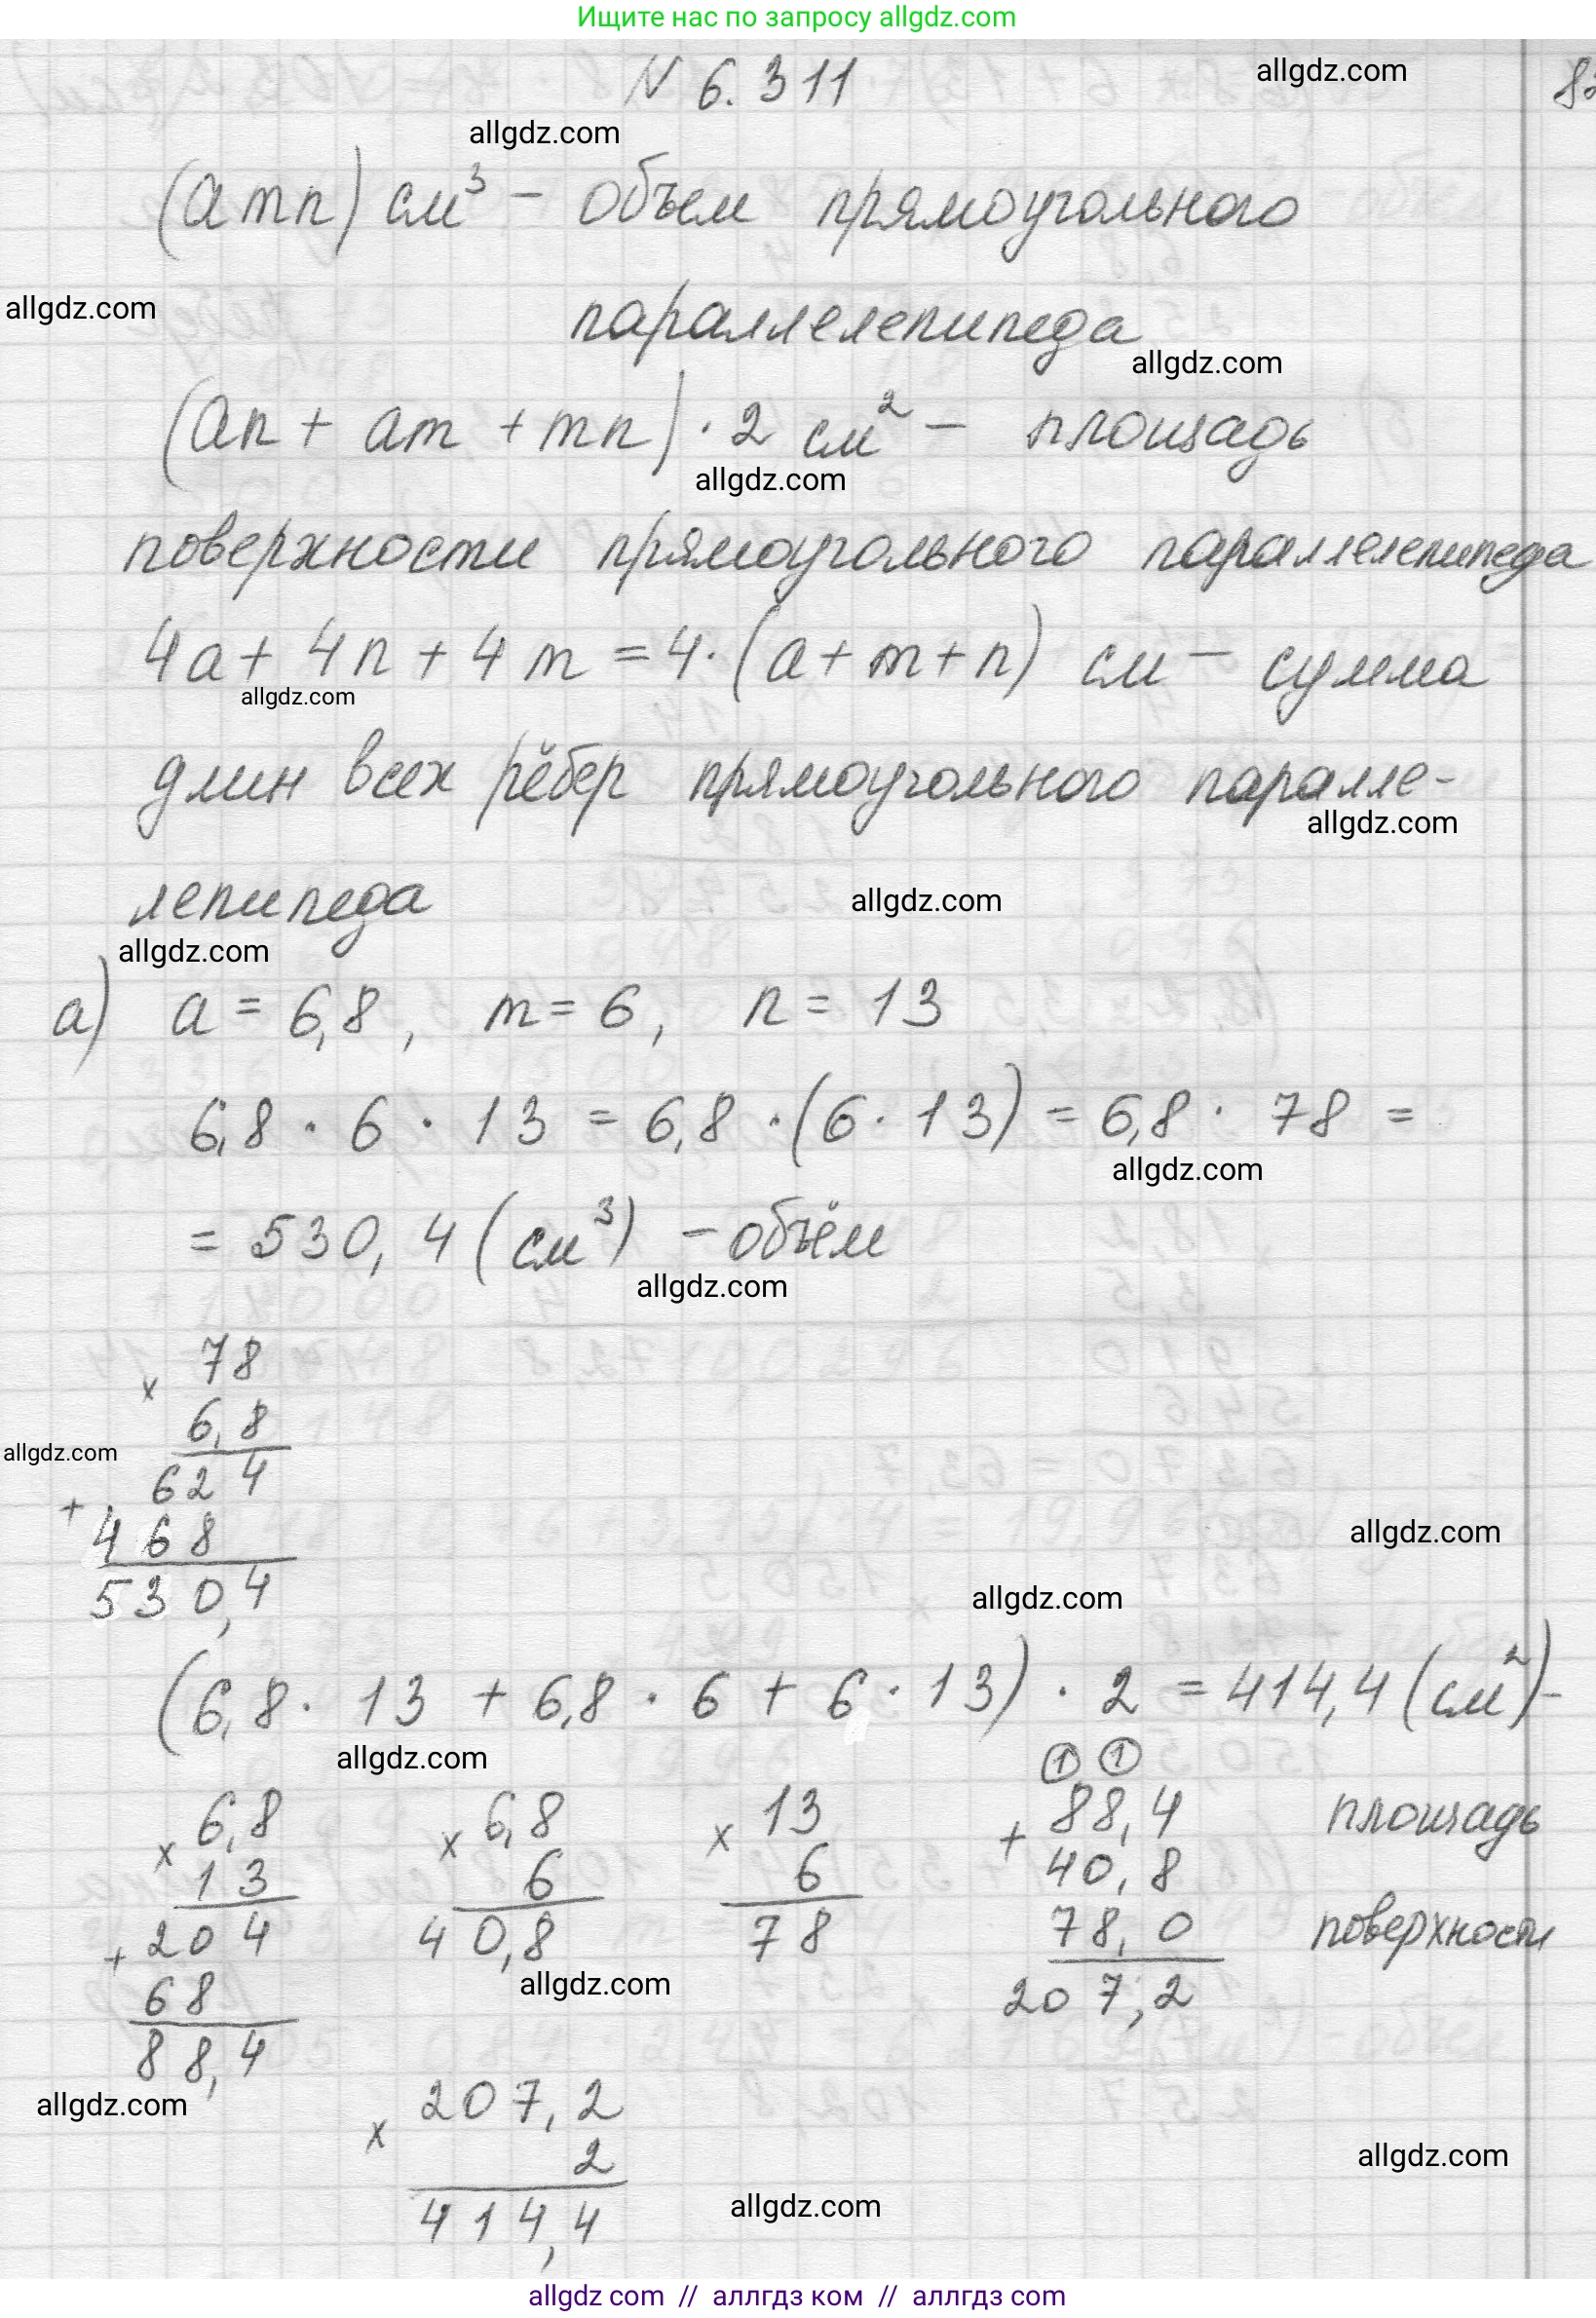 Ищите нас по запросу allgdz.com
N 6.311
allgdz.com
allgdz.com
(amn) см³ - объем прямоугольного
allgdz.com
параллелепипеда
allgdz.com
(an + am + mn) · 2 см² - площадь
allgdz.com
поверхности прямоугольного параллелепипеда
4a + 4n + 4m = 4 · (a + m + n) см - сумма
allgdz.com
длин всех рёбер прямоугольного паралле-
allgdz.com
лепипеда
allgdz.com
allgdz.com
а) a = 6,8, m = 6, n = 13
6,8 · 6 · 13 = 6,8 · (6 · 13) = 6,8 · 78 =
allgdz.com
= 530,4 (см³) - объём
allgdz.com
× 78
6,8
allgdz.com
624
+ 468
allgdz.com
530,4
allgdz.com
(6,8 · 13 + 6,8 · 6 + 6 · 13) · 2 = 414,4 (см²) -
allgdz.com
1 1
× 6,8 × 6,8 × 13 + 88,4 площадь
13 6 6 40,8
+ 204 40,8 78 78,0 поверхности
68 allgdz.com 207,2
88,4
allgdz.com
× 207,2
2
allgdz.com
414,4
allgdz.com
allgdz com // аллгдз ком // аллгдз com